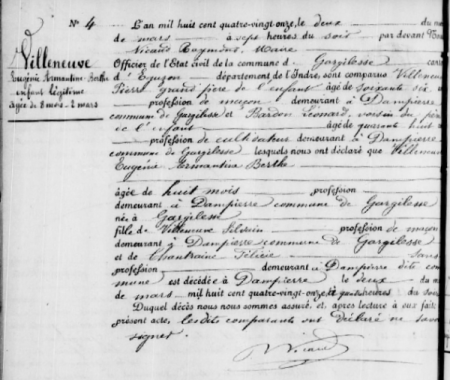 N° 4
Villeneuve
Eugénie Armantine Berthe
enfant légitime
âgée de 8 mois - 2 mars
L'an mil huit cent quatre-vingt onze, le deux du mois
de mars à sept heures du soir par devant Nous
Nicaud Raymond, Maire
Officier de l'État civil de la commune de Gargilesse
d'Eguzon département de l'Indre, sont comparus Villeneuve
Pierre grand père de l'enfant âgé de soixante six
profession de maçon demeurant à Dampierre
commune de Gargilesse et Bardon Léonard voisin du père
de l'enfant âgé de quarante huit
profession de cultivateur demeurant à Dampierre
commune de Gargilesse lesquels nous ont déclaré que Villeneuve
Eugénie Armantine Berthe
âgée de huit mois profession
demeurant à Dampierre commune de Gargilesse
née à Gargilesse
fille de Villeneuve Silvain profession de maçon
demeurant à Dampierre commune de Gargilesse
et de Chantraine Félicie sans
profession demeurant à Dampierre dite com
mune est décédée à Dampierre le deux du mois
de mars mil huit cent quatre-vingt-onze, à heures du soir
Duquel décès nous nous sommes assuré, et après lecture à eux faite
présent acte, les dits comparants ont déclaré ne savoir
signer.
Nicaud